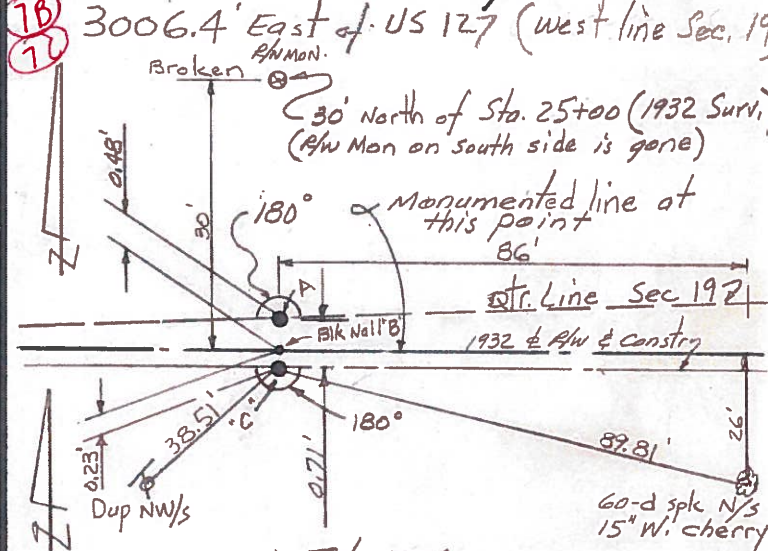 7B
7C
3006.4' East of US 127 (West line Sec. 19
R/W MON.
Broken
30' North of Sta. 25+00 (1932 Surv.
(R/W Mon on south side is gone)
0.48'
30'
180°
Monumented line at
this point
86'
A
Qtr. Line Sec 19
Blk Nail "B"
1932 ₵ R/W & Constr
N
0.23'
38.51'
"C"
180°
0.71'
89.81'
26'
Dup NW/s
60-d spk N/s
15" W. cherry
N